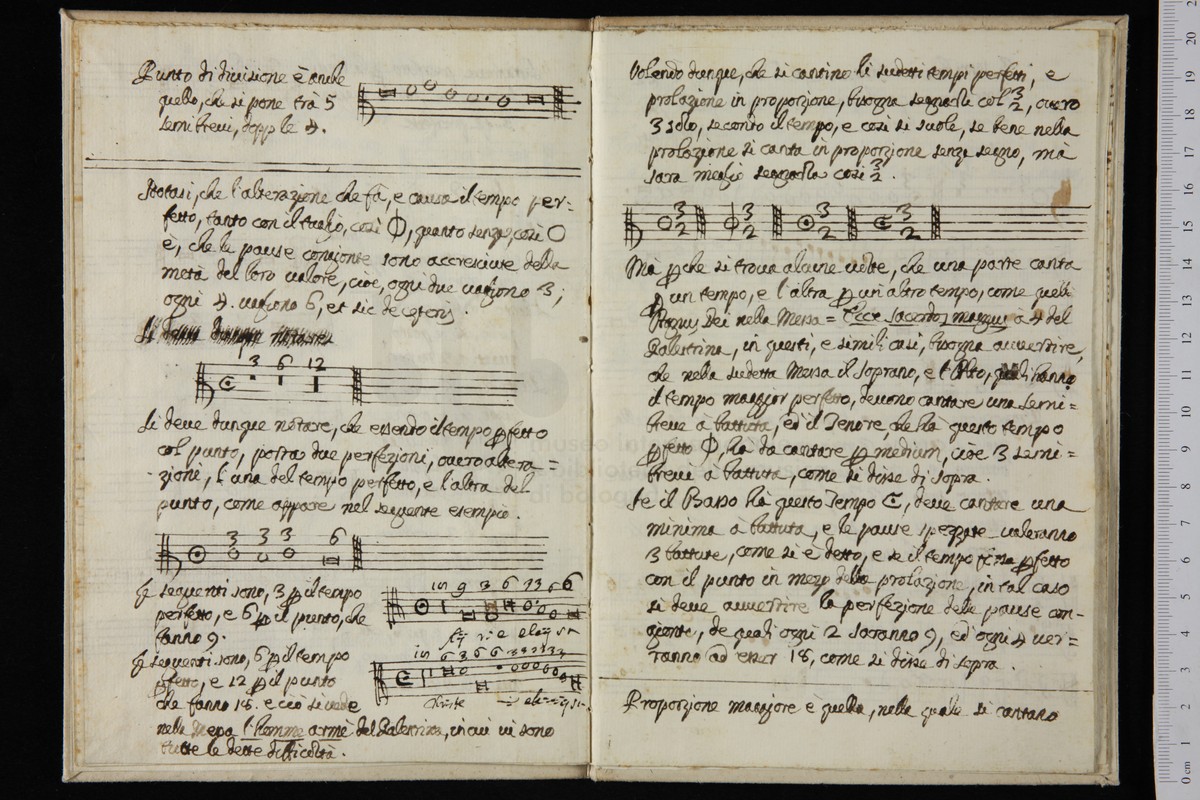 Punto di divisione è anche
quello, che si pone trà 5
semibrevi, dopp le 4.
Notasi, che l'alterazione che fà, e causa il tempo per=
fetto, tanto con il taglio, così Φ, quanto senza, così O
è, che le pause congionte sono accresciute della
metà del loro valore, cioè, ogni due vagliono 3;
ogni 4. vagliono 6, et sic de ceteris.
3 6 12
Si deve dunque notare, che essendo il tempo pfetto
col punto, porta due perfezioni, overo altera=
zioni, l'una del tempo perfetto, e l'altra del
punto, come appare nel seguente esempio.
3 3 3 6
seguenti sono, 3 p il tempo
perfetto, e 6 p il punto, che
fanno 9.
seguenti sono, 6 p il tempo
pfetto, e 12 p il punto
che fanno 18. e ciò si vede
nella Messa l'homme armè del Palestrina, in cui vi sono
tutte le dette difficoltà.
Volendo dunque, che si cantino li sudetti tempi perfetti, e
prolazione in proporzione, bisogna segnarli col 3/2, overo
3 solo, secondo il tempo, e così si suole, se bene nella
prolazione si canta in proporzione senza segno, mà
sarà meglio segnarla così 3/2.
O 3/2 Φ 3/2 ʘ 3/2 3/2
Mà pche si trova alcune volte, che una parte canta
p un tempo, e l'altra p un altro tempo, come quelli
Agnus Dei nella Messa = Ecce sacerdos magnus a 4 del
Palestrina, in questi, e simili casi, bisogna avvertire,
che nella sudetta Messa il Soprano, e l'Alto, quali hanno
il tempo maggior perfetto, devono cantare una semi=
breve à battuta, ed il Tenore, che hà questo tempo
pfetto Φ, ha da cantare p medium, cioè 3 semi=
brevi à battuta, come si disse di sopra.
Se il Basso hà questo Tempo, deve cantare una
minima à battuta, e le pause spezzate valeranno
3 battute, come si è detto, e se il tempo pfetto
con il punto in mezo della prolazione, in tal caso
si deve avvertire la perfezione delle pause con=
gionte, de quali ogni 2 saranno 9, ed ogni 4 ver=
ranno ad esser 18, come si disse di sopra.
Proporzione maggiore è quella, nella quale si cantano